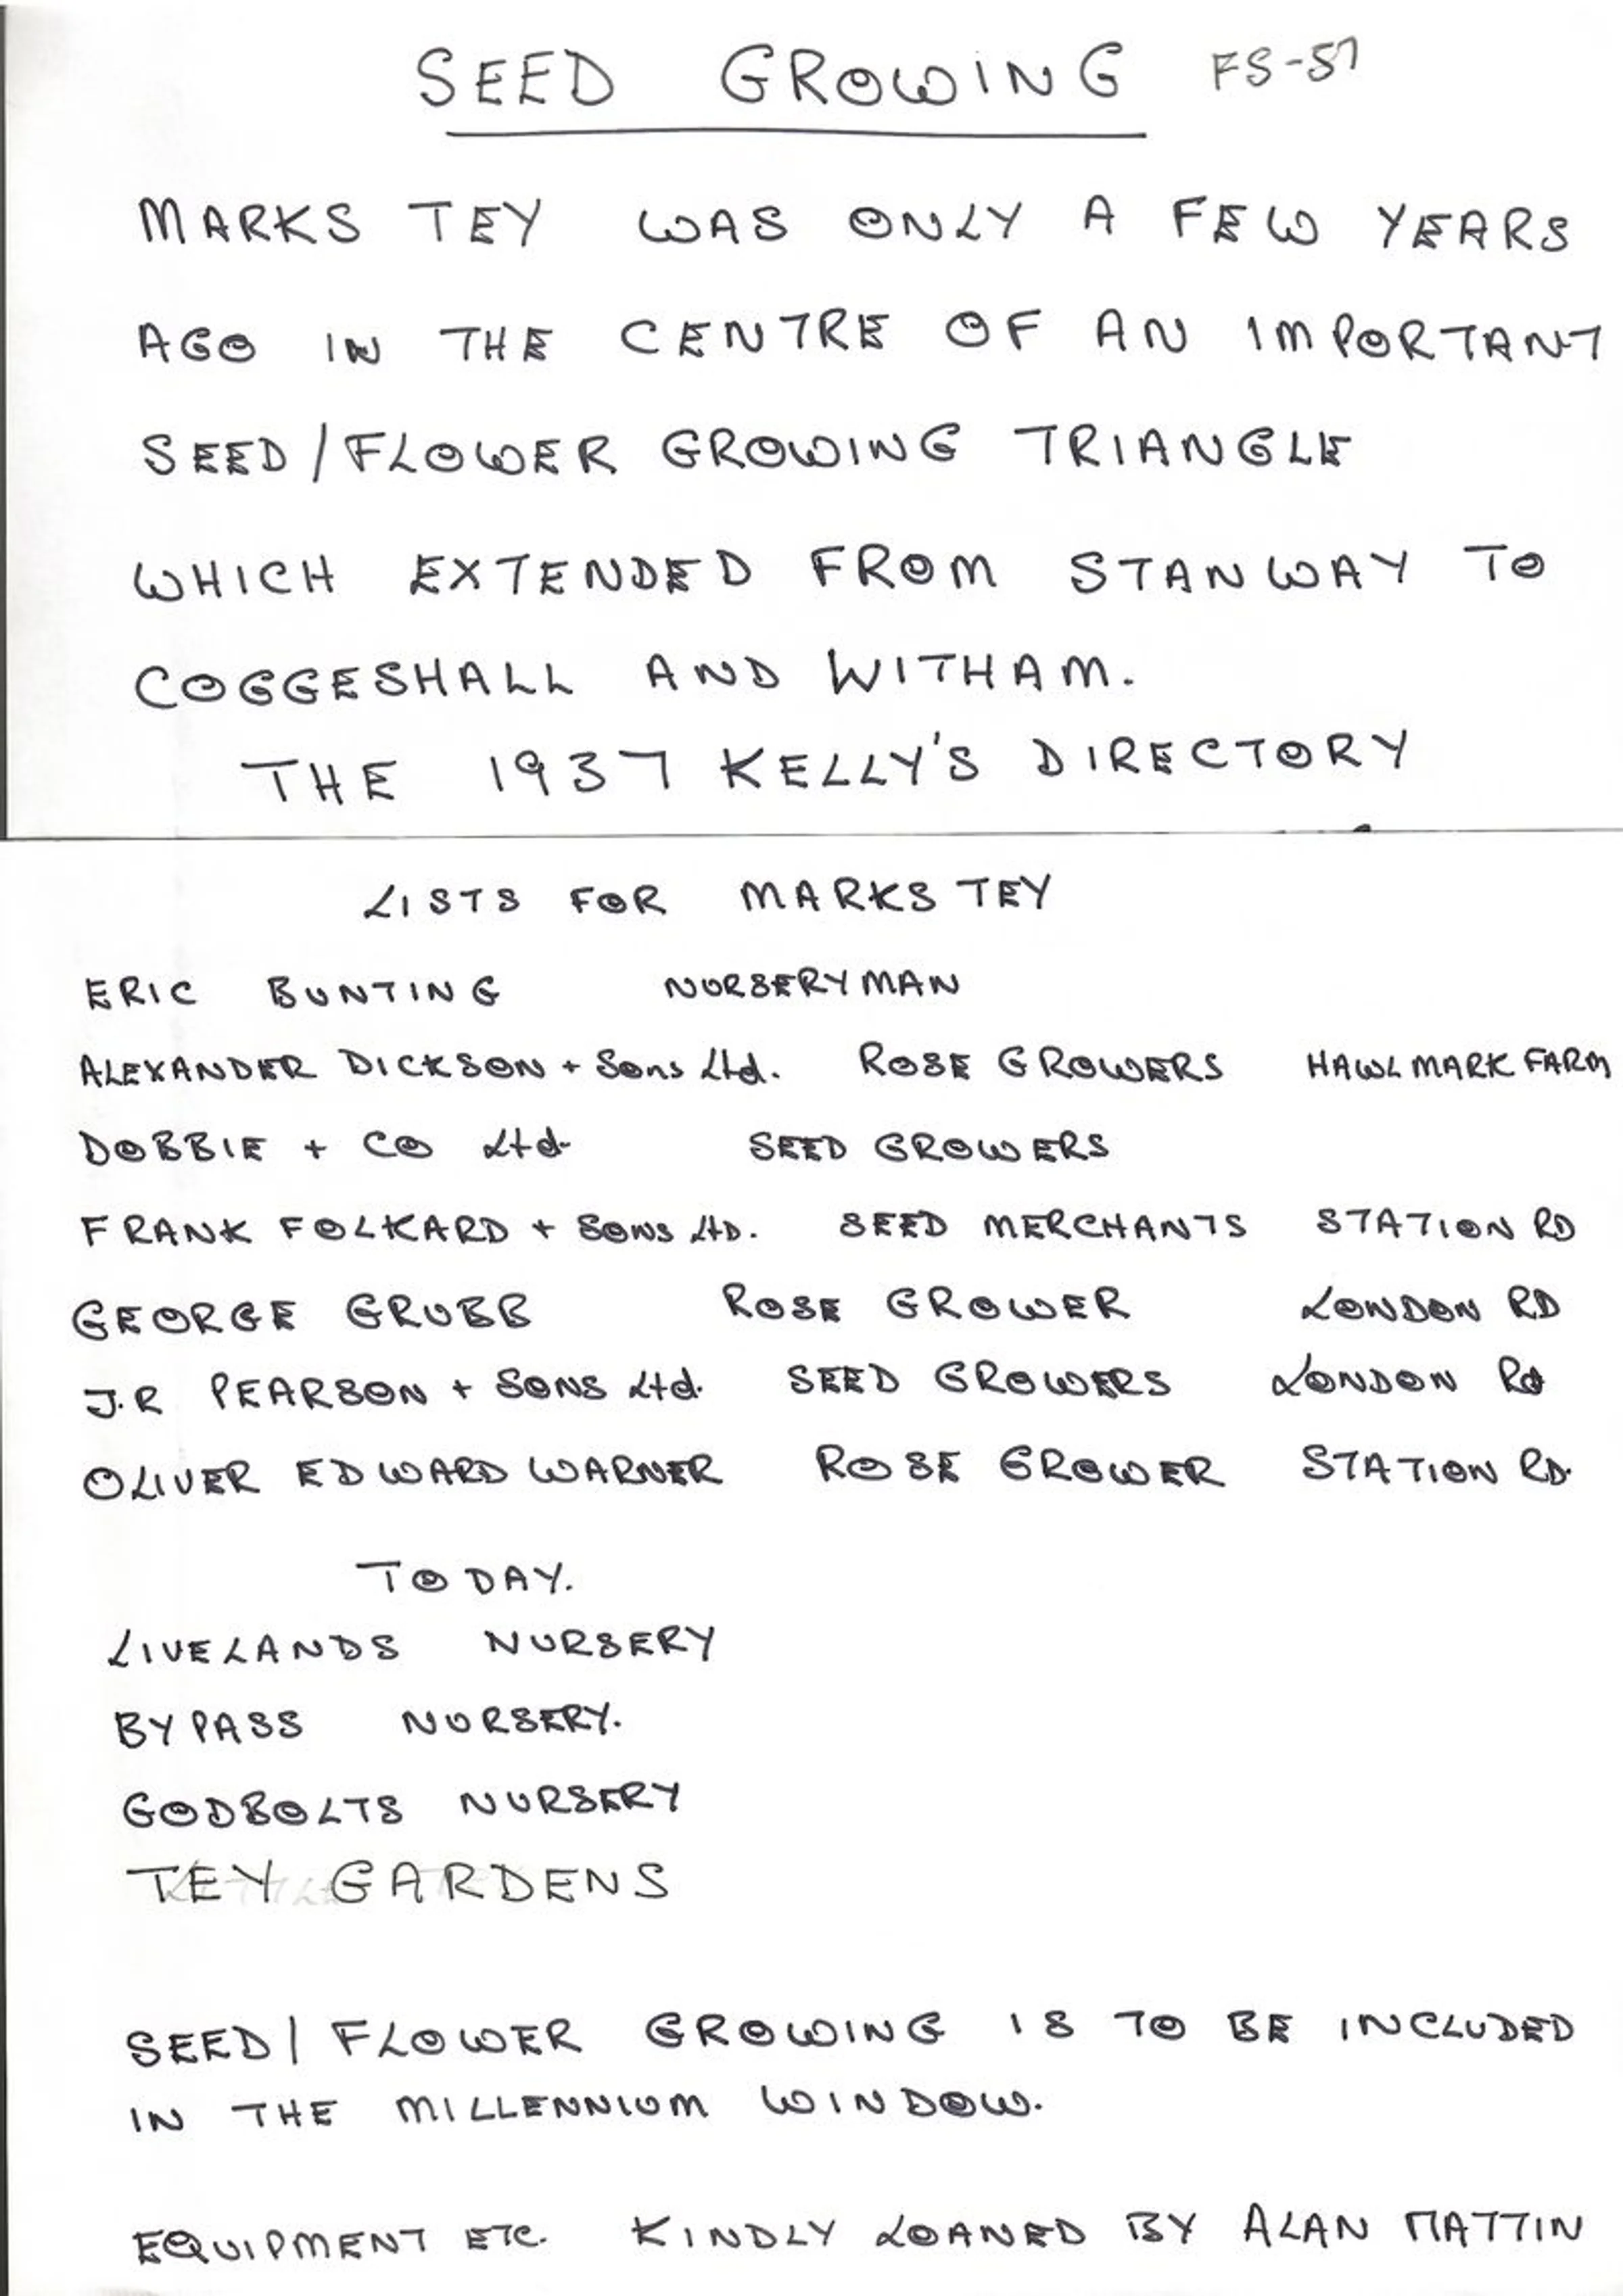 SEED GROWING FS-57
MARKS TEY WAS ONLY A FEW YEARS
AGO IN THE CENTRE OF AN IMPORTANT
SEED/FLOWER GROWING TRIANGLE
WHICH EXTENDED FROM STANWAY TO
COGGESHALL AND WITHAM.
THE 1937 KELLY'S DIRECTORY
LISTS FOR MARKS TEY
ERIC BUNTING NURSERYMAN
ALEXANDER DICKSON + Sons Ltd. ROSE GROWERS HAWLMARK FARM
DOBBIE + CO Ltd. SEED GROWERS
FRANK FOLKARD + SONS LTD. SEED MERCHANTS STATION RD
GEORGE GRUBB ROSE GROWER LONDON RD
J.R PEARSON + SONS Ltd. SEED GROWERS LONDON Rd
OLIVER EDWARD WARNER ROSE GROWER STATION RD.
TODAY.
LIVELANDS NURSERY
BYPASS NURSERY.
GODBOLTS NURSERY
TEY GARDENS
SEED/FLOWER GROWING IS TO BE INCLUDED
IN THE MILLENNIUM WINDOW.
EQUIPMENT ETC. KINDLY LOANED BY ALAN MATTIN